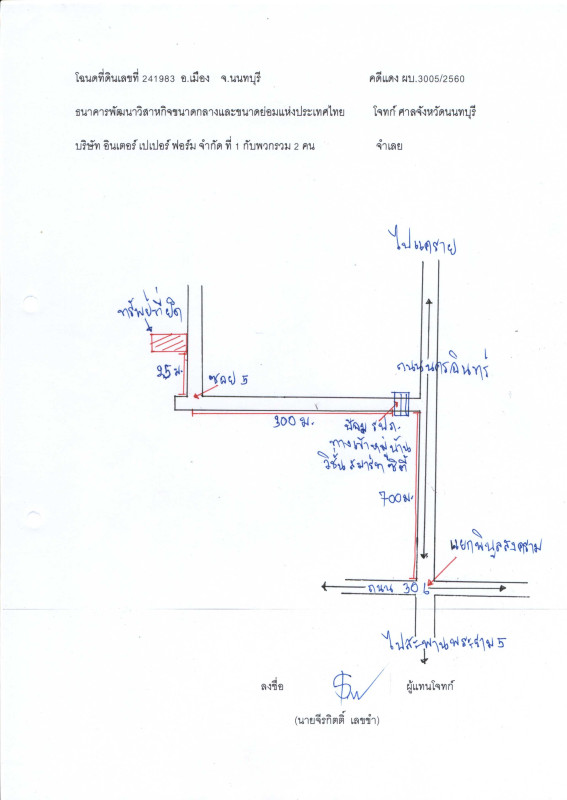 โฉนดที่ดินเลขที่ 241983 อ.เมือง จ.นนทบุรี คดีแดง ผบ.3005/2560
ธนาคารพัฒนาวิสาหกิจขนาดกลางและขนาดย่อมแห่งประเทศไทย โจทก์ ศาลจังหวัดนนทบุรี
บริษัท อินเตอร์ เปเปอร์ ฟอร์ม จำกัด ที่ 1 กับพวกรวม 2 คน จำเลย
ไปแคราย
ทรัพย์ที่ยึด
25 ม.
ซอย 5
ถนนนครอินทร์
300 ม.
ป้อม รปภ.
ทางเข้าหมู่บ้าน
วิชั่น สมาร์ท ซิตี้
700 ม.
แยกพิบูลสงคราม
ถนน 306
ไปสะพานพระราม 5
ลงชื่อ ผู้แทนโจทก์
(นายจีรกิตติ์ เลขขำ)